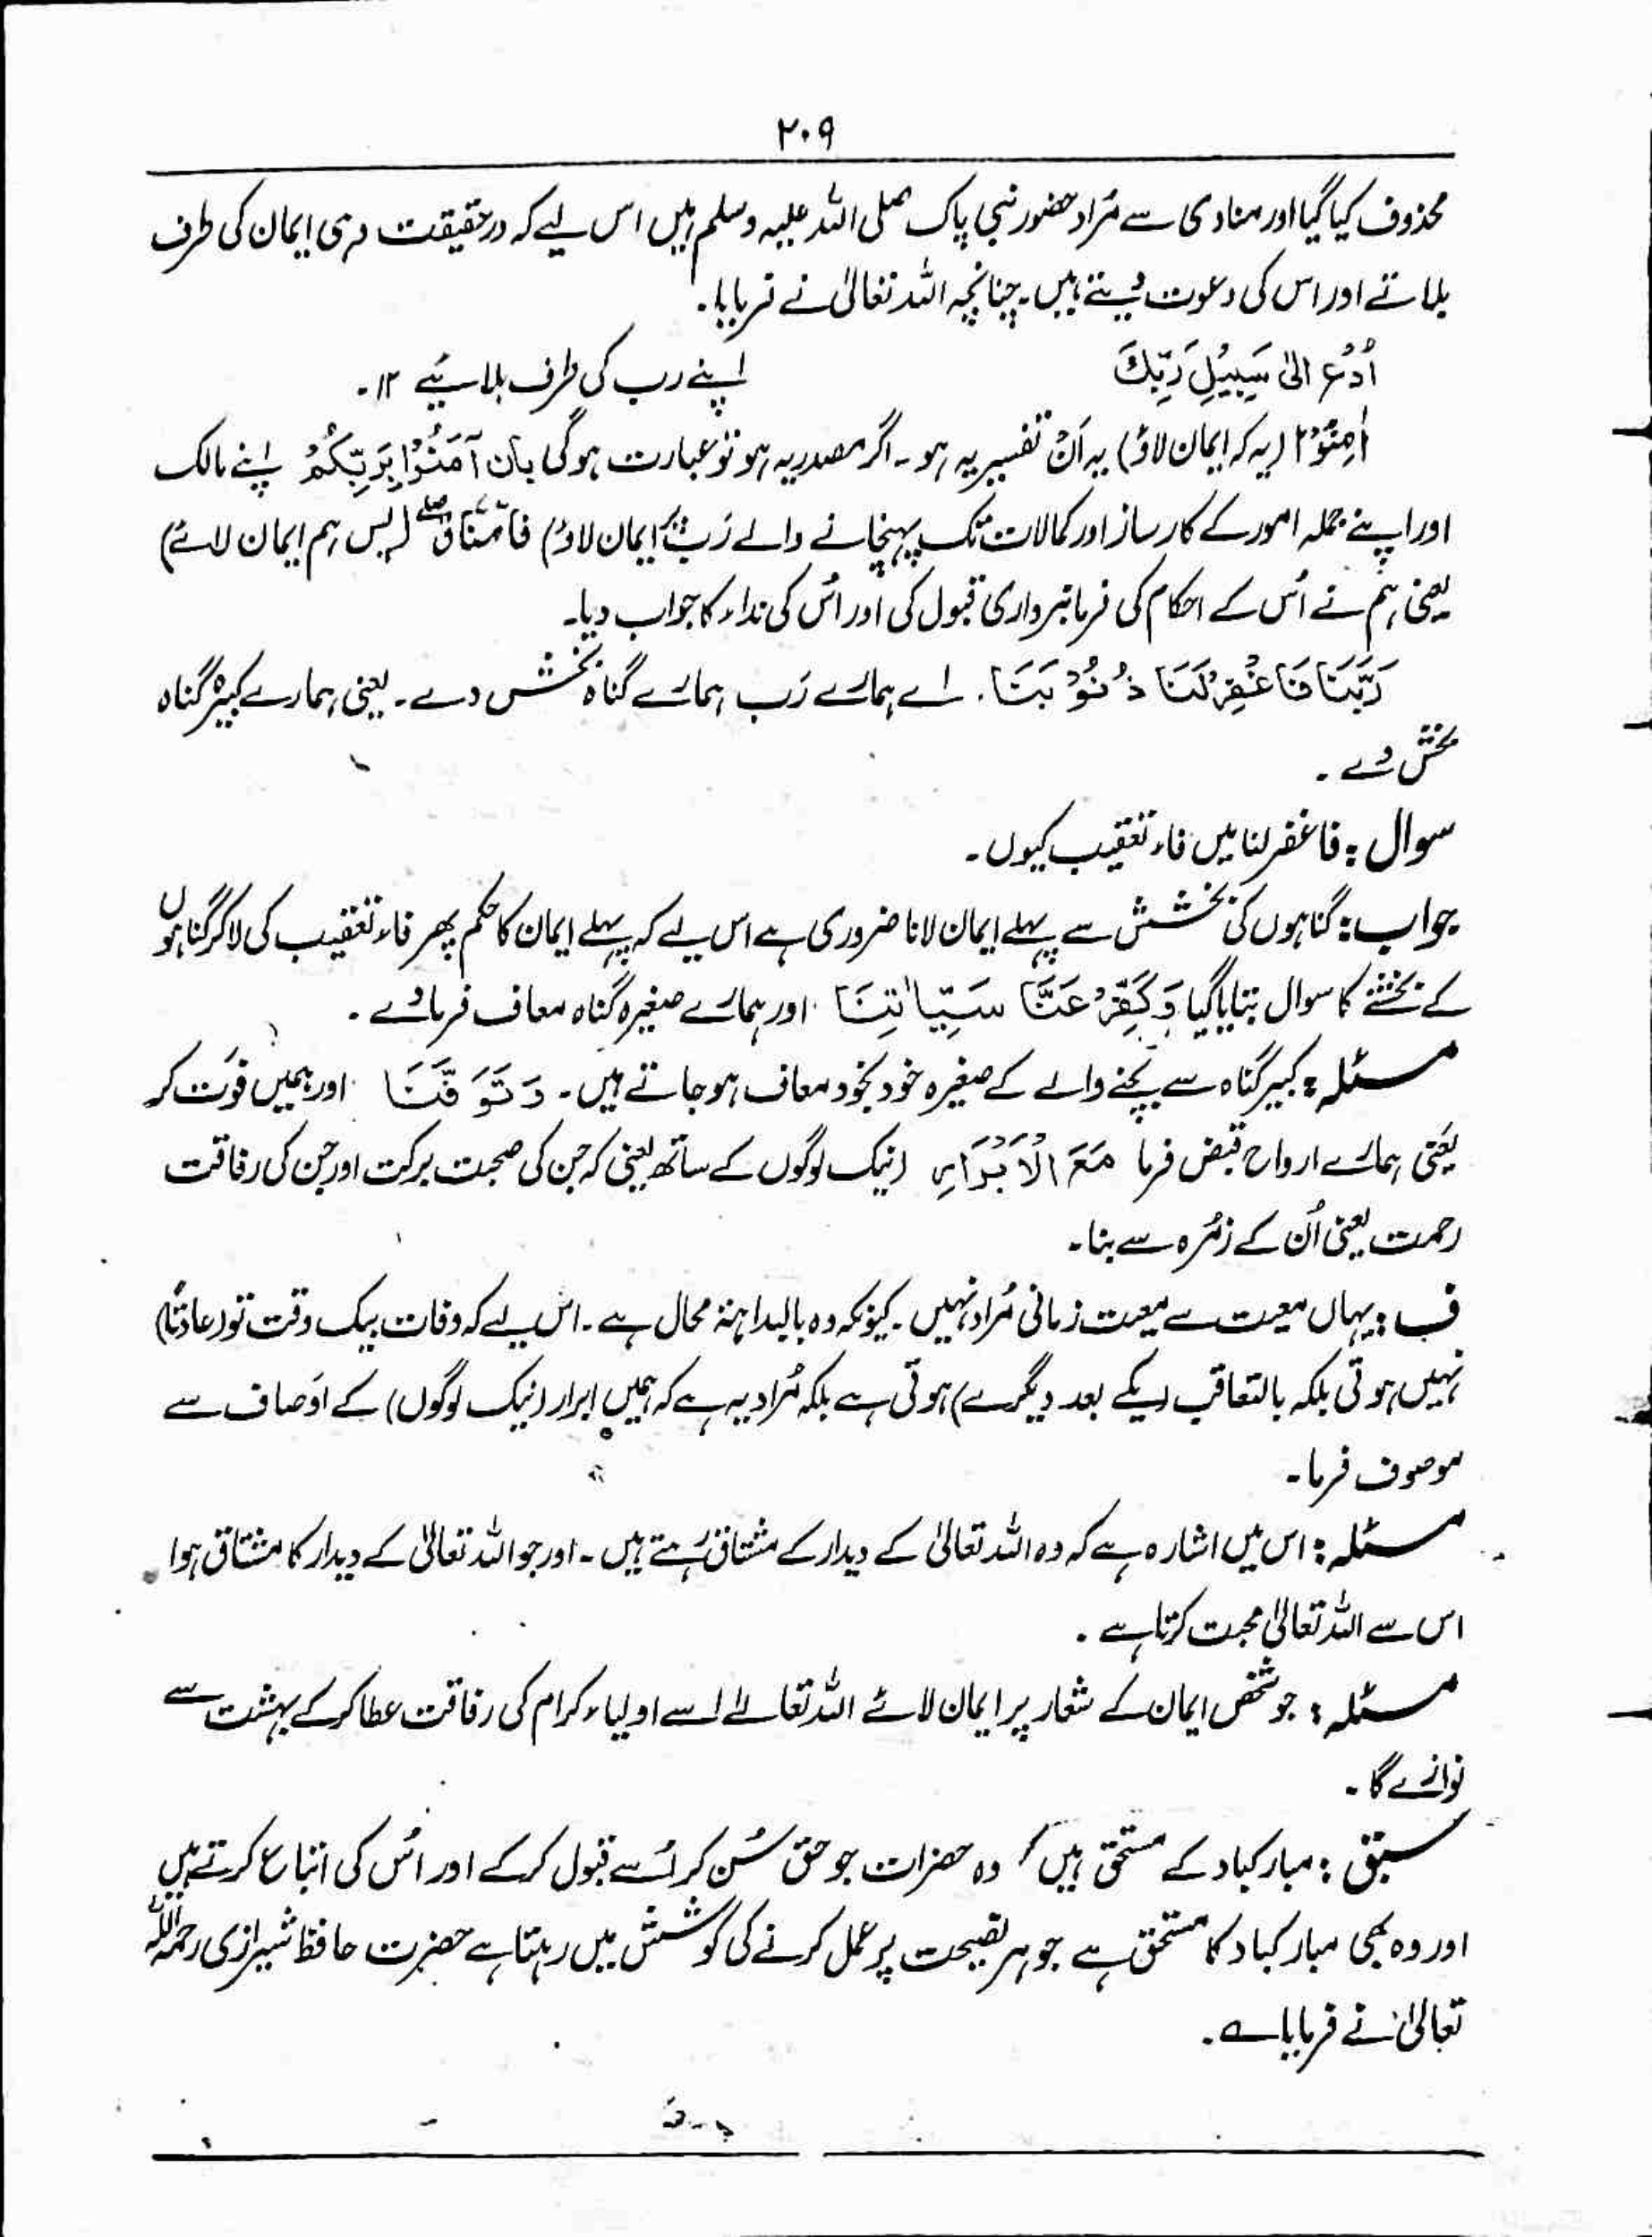 ۲۰۹
محذوف کیا گیا اور منادی سے مُراد حضور نبی پاک صلی اللہ علیہ وسلم ہیں اس لیے کہ درحقیقت وہی ایمان کی طرف
بلاتے اور اس کی دعوت دیتے ہیں۔ چنانچہ اللہ تعالیٰ نے فرمایا۔
اُدْعُ اِلیٰ سَبِیْلِ رَبِّكَ اپنے رب کی طرف بلائیے ۱۲۔
اٰمِنُوْا (یہ کہ ایمان لاؤ) یہ اَنْ تفسیریہ ہو۔ اگر مصدریہ ہو تو عبارت ہوگی بان آمَنُوْا بِرَبِّكُمْ اپنے مالک
اور اپنے جملہ امور کے کارساز اور کمالات تک پہنچانے والے رَب پر ایمان لاؤ) فَاٰمَنَّا ق (پس ہم ایمان لائے)
یعنی ہم نے اُس کے احکام کی فرمانبرداری قبول کی اور اُس کی نداء کا جواب دیا۔
رَبَّنَا فَاغْفِرْلَنَا ذُنُوْبَنَا۔ اے ہمارے رَب ہمارے گناہ بخش دے۔ یعنی ہمارے کبیرہ گناہ
بخش دے۔
سوال : فاغفرلنا میں فاء تعقیب کیوں۔
جواب : گناہوں کی بخشش سے پہلے ایمان لانا ضروری ہے اس لیے کہ پہلے ایمان کا حکم پھر فاء تعقیب کی لاکر گناہوں
کے بخشنے کا سوال بتایا گیا وَكَفِّرْ عَنَّا سَیِّاٰتِنَا اور ہمارے صغیرہ گناہ معاف فرمادے۔
مسئلہ : کبیر گناہ سے بچنے والے کے صغیرہ خود بخود معاف ہو جاتے ہیں۔ وَتَوَفَّنَا اور ہمیں فوت کر
یعنی ہمارے ارواح قبض فرما مَعَ الْاَبْرَارِ (نیک لوگوں کے ساتھ یعنی کہ جن کی صحبت برکت اور جن کی رفاقت
رحمت یعنی اُن کے زمُرہ سے بنا۔
ف : یہاں معیت سے معیت زمانی مُراد نہیں۔ کیونکہ وہ بالبداہۃ محال ہے۔ اس لیے کہ وفات بیک وقت تو (عادتاً)
نہیں ہوتی بلکہ بالتعاقب (یکے بعد دیگرے) ہوتی ہے بلکہ مُراد یہ ہے کہ ہمیں ابرار (نیک لوگوں) کے اوَصاف سے
موصوف فرما۔
مسئلہ : اس میں اشارہ ہے کہ وہ اللہ تعالیٰ کے دیدار کے مشتاق رہتے ہیں۔ اور جو اللہ تعالیٰ کے دیدار کا مشتاق ہوا
اس سے اللہ تعالیٰ محبت کرتا ہے۔
مسئلہ : جو شخص ایمان کے شعار پر ایمان لائے اللہ تعالےٰ اسے اولیاء کرام کی رفاقت عطا کر کے بہشت سے
نوازے گا۔
سبق : مبارکباد کے مستحق ہیں وہ حضرات جو حق سُن کر اُسے قبول کرکے اور اُس کی اتباع کرتے ہیں
اور وہ بھی مبارکباد کا مستحق ہے جو ہر نصیحت پر عمل کرنے کی کوشش میں رہتا ہے حضرت حافظ شیرازی رحمہ اللہ
تعالیٰ نے فرمایا ؎۔